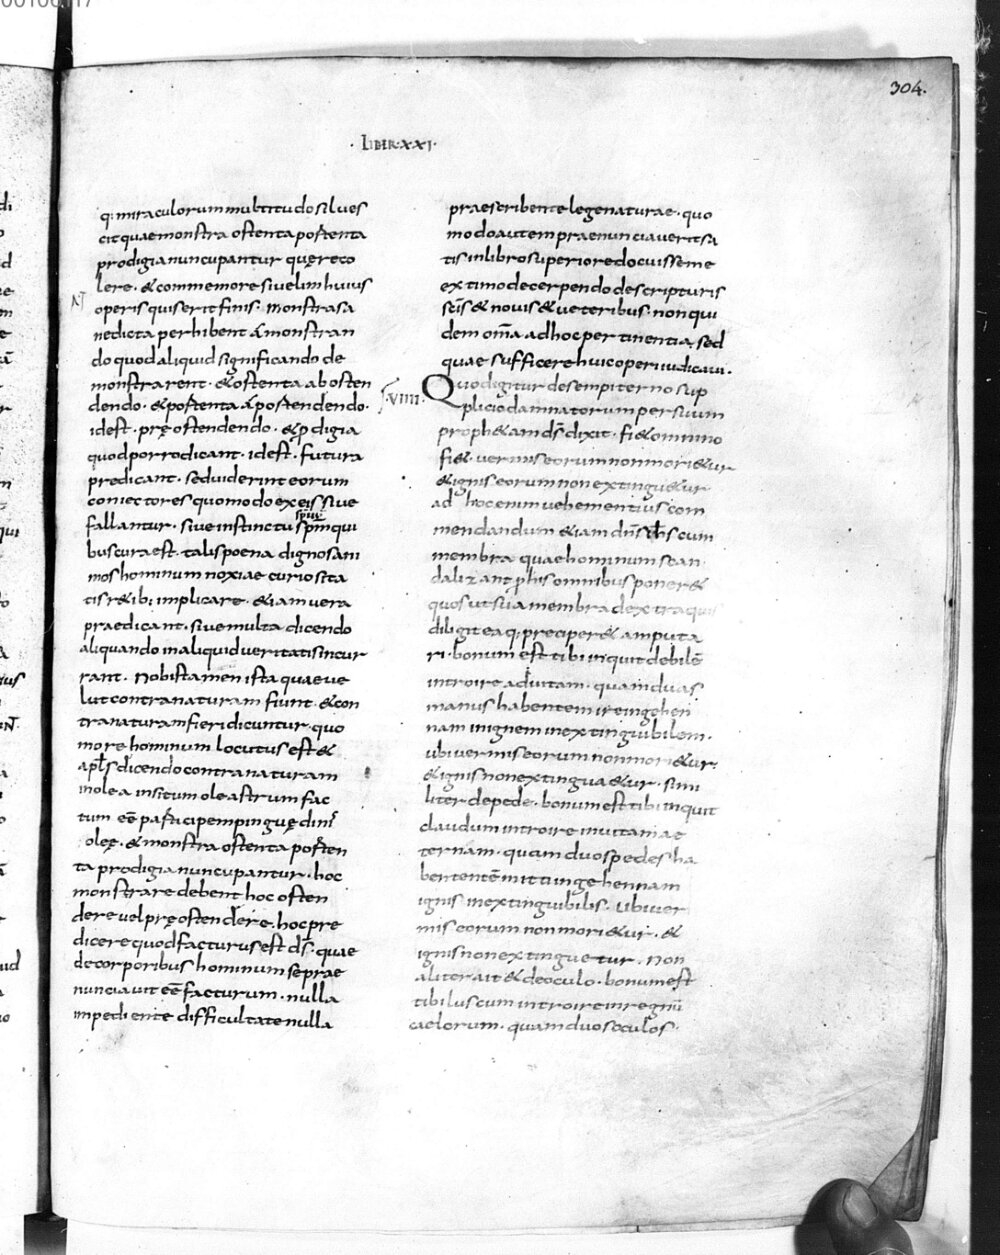 304.
· LIBER · XXI ·
q; miraculorum multitudo silues
cit quae monstra ostenta portenta
prodigia nuncupantur quę reco
lere · & commemorare si uelim huius
operis quis erit finis · monstra sa
ne dicta perhibent a monstran
do quod aliquid significando de
monstrarent · & ostenta ab osten
dendo · & portenta a portendendo ·
id est · pręostendendo · & prodigia
quod porro dicant · id est · futura
predicant · sed uiderint eorum
coniectores quomodo ex eis siue
fallantur · siue instinctu spm qui
bus cura est · tali spoena dignos ani
mos hominum noxiae curiosita
tis r&ib; implicare · &iam uera
praedicant · siue multa dicendo
aliquando in aliquid ueritatis incur
rant · nobis tamen ista quae ue
lut contra naturam fiunt · & con
tra naturam fieri dicuntur · quo
more hominum locutus est &
apls dicendo contra naturam
in olea insitum oleastrum fac
tum eē participem pinguędinis
oleę · & monstra ostenta porten
ta prodigia nuncupantur · hoc
monstrare debent hoc osten
dere uel pręostendere · hoc pre
dicere quod facturus est ds · quae
de corporibus hominum se prae
nunciauit eē facturum · nulla
impediente difficultate nulla
praescribente lege naturae · quo
modo autem praenunciauerit sa
tis in libro superiore docuisse me
existimo decerpendo de scripturis
scis & nouis & ueteribus · non qui
dem omā ad hoc pertinentia · sed
quae sufficere huic operi iudicaui ·
VIIII · Quod igitur de sempiterno sup
plicio damnatorum per suum
proph&am ds dixit · fi& omnino
fi& · uermis eorum non mori&ur
& ignis eorum non extingu&ur
ad hoc enim uehementius com
mendandum &iam dns ihs cum
membra quae hominum scan
dalizant p his omnibus poner&
quos ut sua membra dextra quis
diligit eaq; preciper& amputa
ri · bonum est tibi inquit debilē
introire ad uitam · quam duas
manus habentem ire in gehen
nam in ignem inextinguibilem ·
ubi uermis eorum non mori&ur ·
& ignis non extingua&ur · simi
liter de pede · bonum est tibi inquit
claudum introire in uitam ae
ternam · quam duos pedes ha
bententē mitti in gehennam
ignis inextinguibilis · ubi uer
mis eorum non mori&ur · &
ignis non extinguetur · non
aliter ait & de oculo · bonum est
tibi luscum introire in regnū
caelorum · quam duos oculos ·